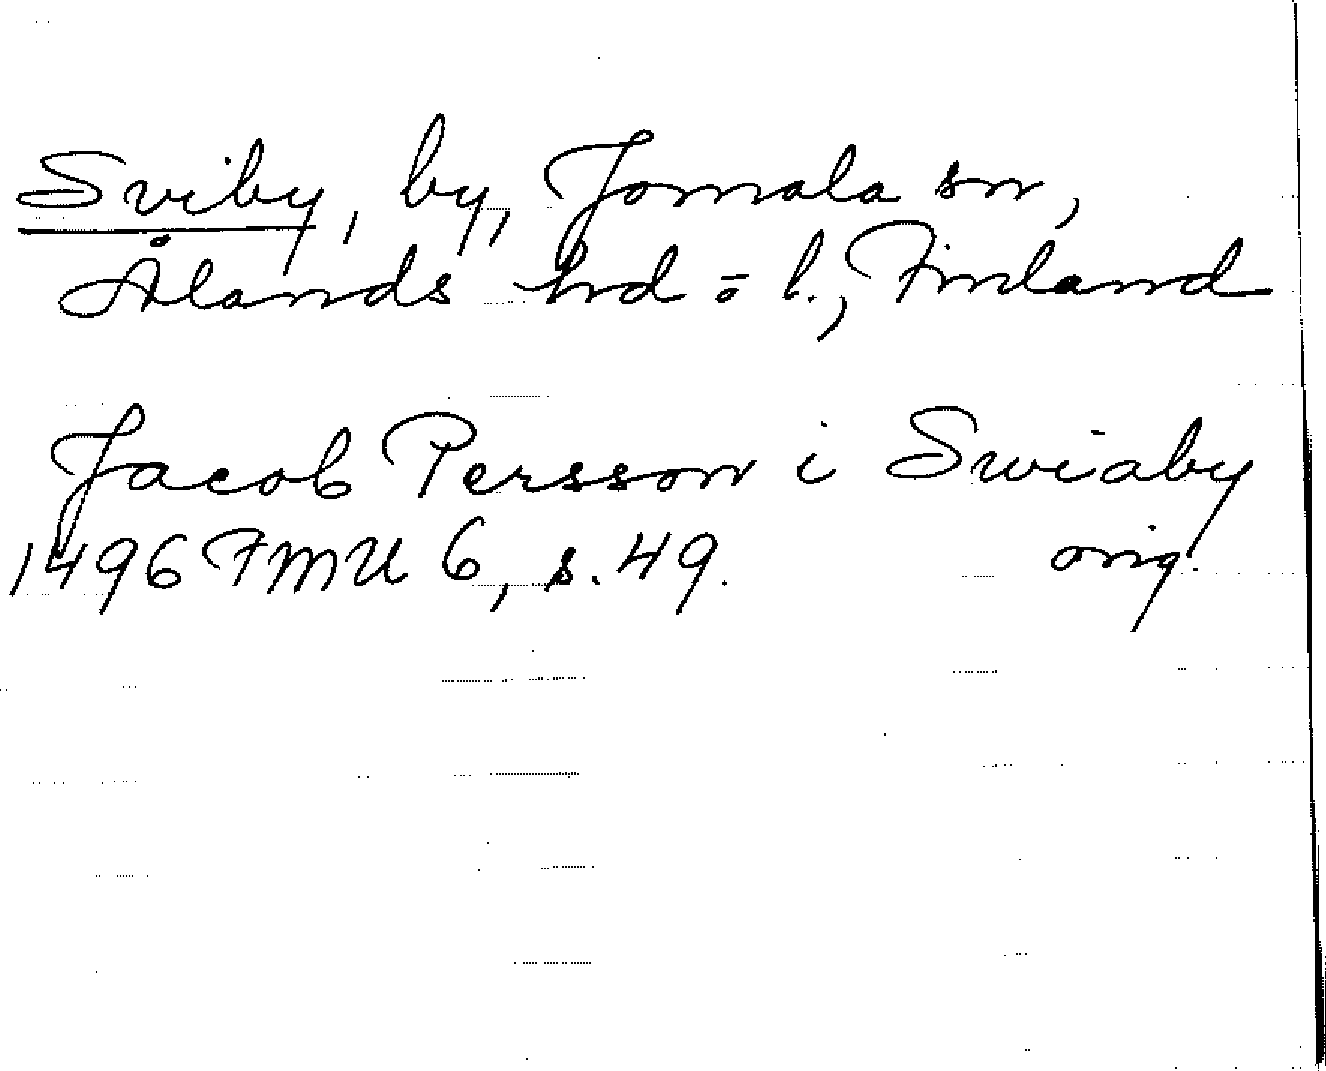 Sviby, by, Jomala sn,
Ålands hd o l., Finland
Jacob Persson i Swiaby
1496 FMU 6, s. 49. orig.